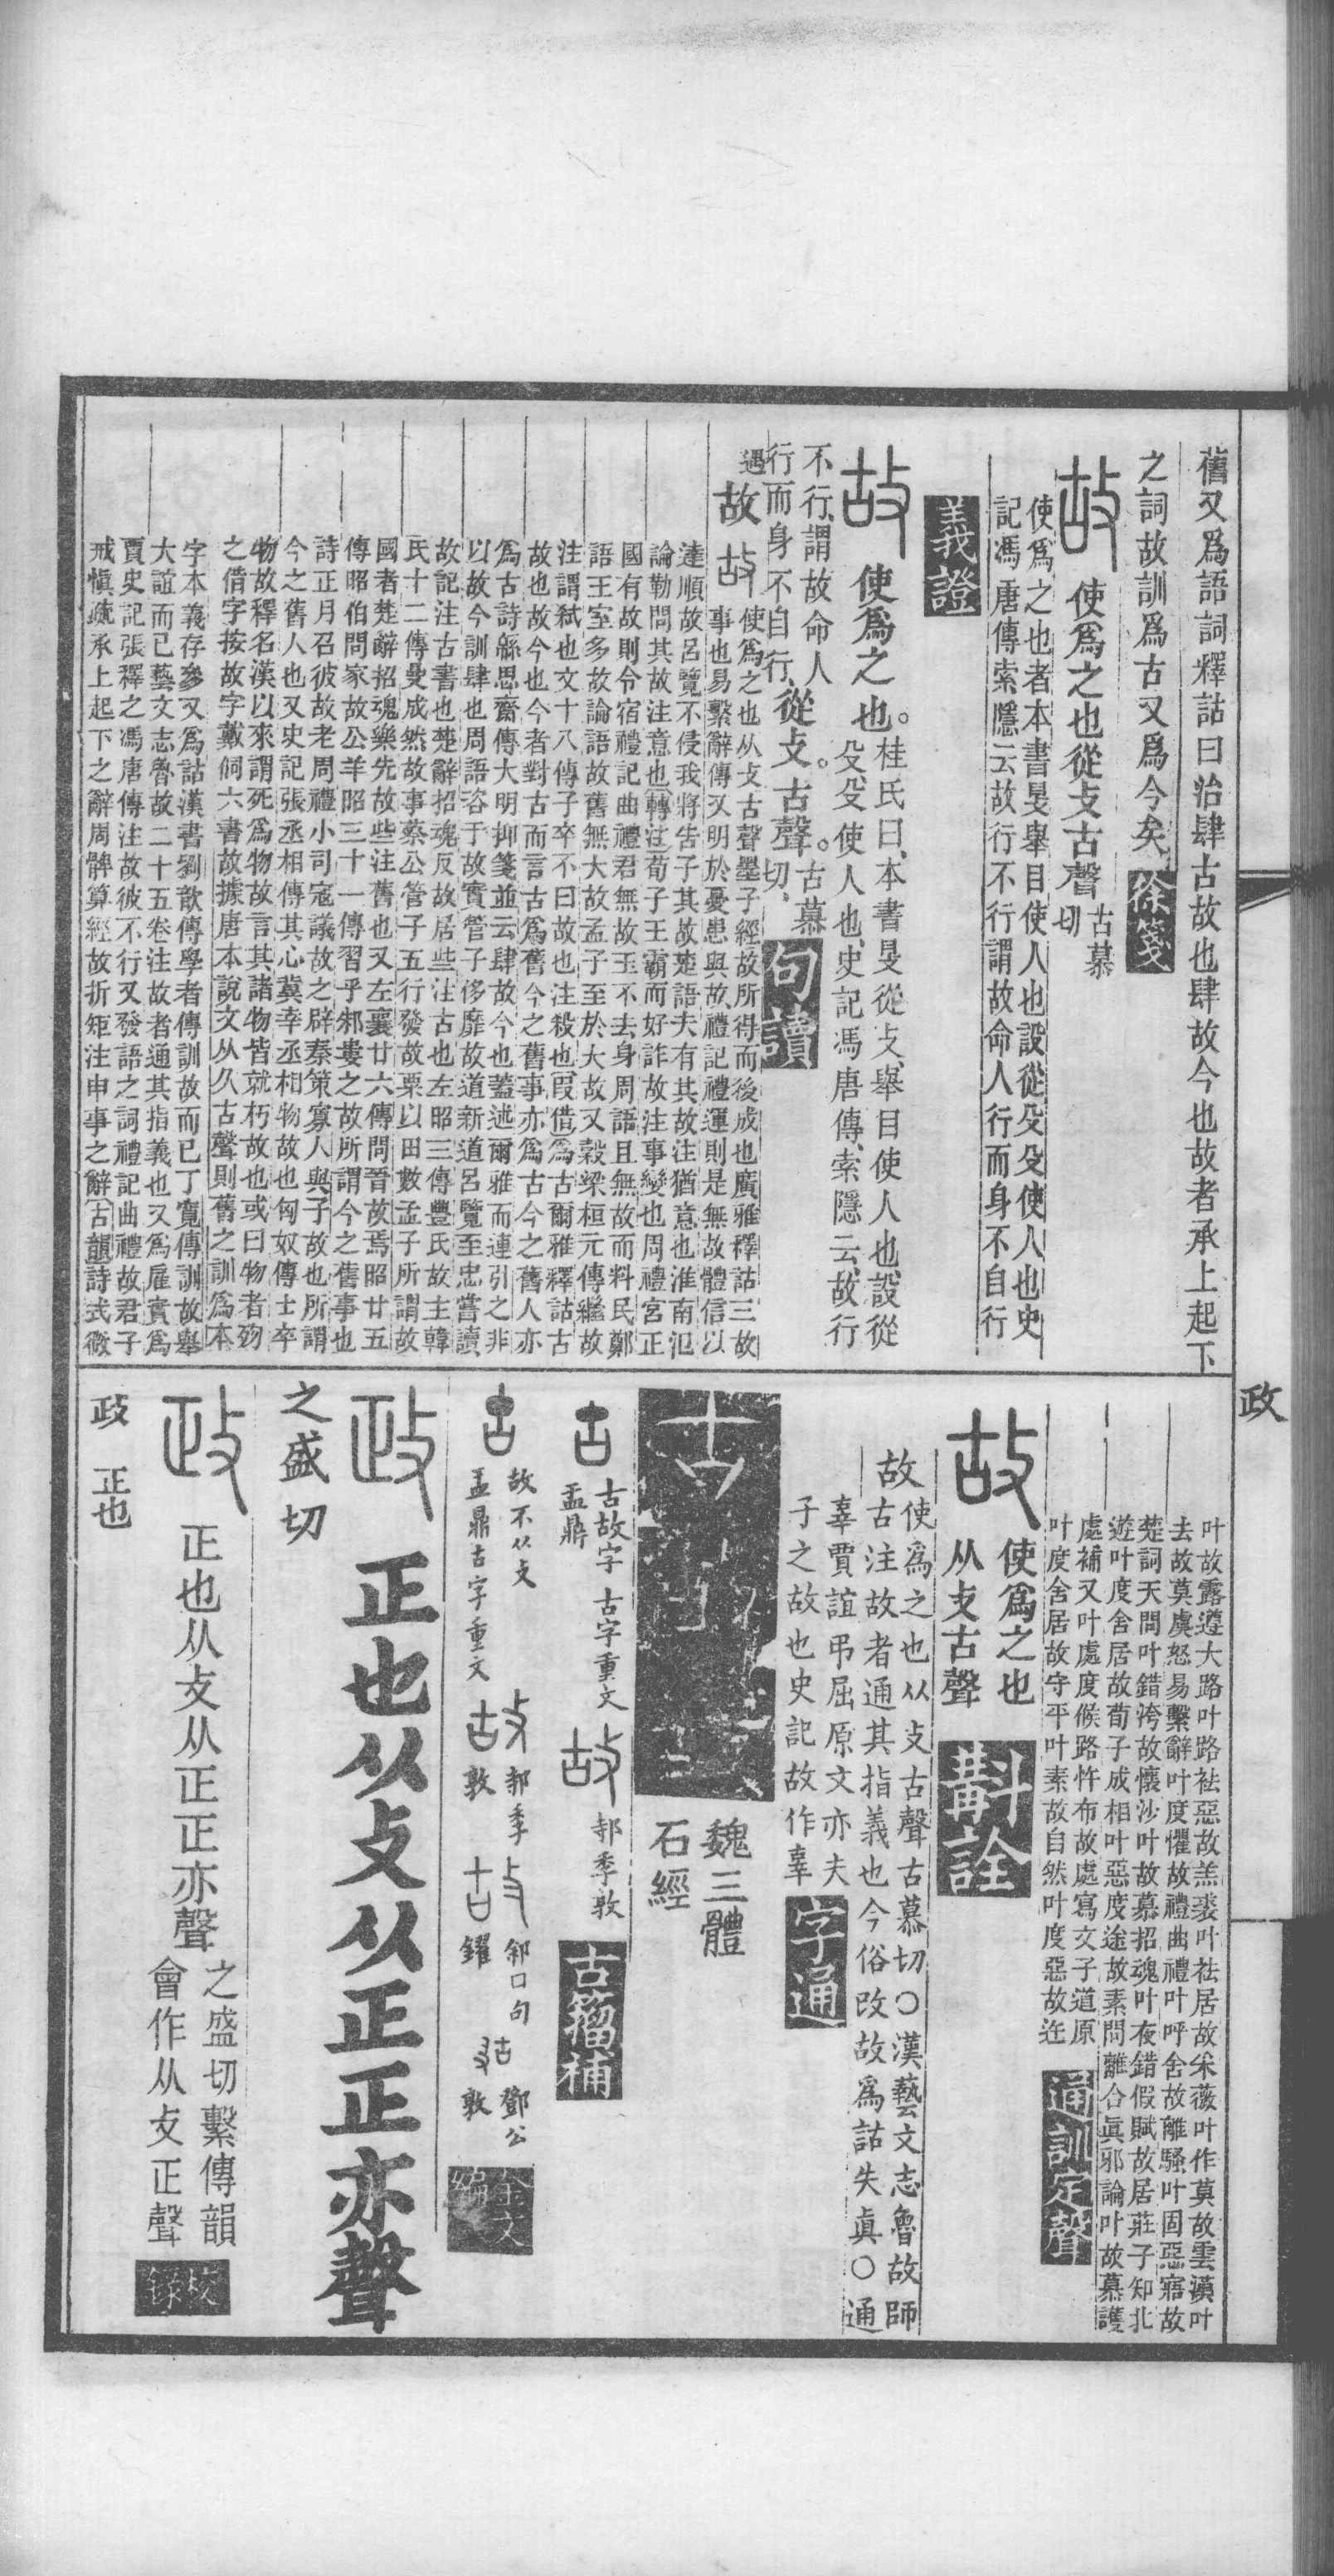 舊又爲語詞釋詁曰治肆古故也肆故今也故者承上起下
之詞故訓爲古又爲今矣
徐箋
使爲之也從攴古聲
古慕
切
使爲之也者本書𥄎舉目使人也設從殳殳使人也史
記馮唐傳索隱云故行不行謂故命人行而身不自行
義證
故
使爲之也。
桂氏曰、本書𥄎從攴、舉目使人也、設從
殳、殳、使人也、史記馮唐傳、索隱云、故行
不行、謂故命人
行而身不自行、
從攴。古聲。
古慕
切、
句讀
遇
故
故
使爲之也从攴古聲墨子經故所得而後成也廣雅釋詁三故
事也易繫辭傳又明於憂患與故禮記禮運則是無故體信以
達順故呂覽不侵我將告子其故楚語夫有其故注猶意也淮南氾
論勒問其故注意也轉注荀子王霸而好詐故注事變也周禮宮正
國有故則令宿禮記曲禮君無故玉不去身周語且無故而料民鄭
語王室多故論語故舊無大故孟子至於大故又穀梁桓元傳繼故
注謂弒也文十八傳子卒不曰故也注殺也叚借爲古爾雅釋詁古
故也故今也今者對古而言古爲舊今之舊事亦爲古今之舊人亦
爲古詩緜思齋傳大明抑箋並云肆故今也蓋述爾雅而連引之非
以故今訓肆也周語咨于故實管子侈靡故道新道呂覽至忠嘗讀
故記注古書也楚辭招魂反故居些注古也左昭三傳豐氏故主韓
氏十二傳曼成然故事蔡公管子五行發故粟以田數孟子所謂故
國者楚辭招魂樂先故些注舊也又左襄廿六傳問晉故焉昭廿五
傳昭伯問家故公羊昭三十一傳習乎邾婁之故所謂今之舊事也
詩正月召彼故老周禮小司寇議故之辟秦策寡人與子故也所謂
今之舊人也又史記張丞相傳其心冀幸丞相物故也匈奴傳士卒
物故釋名漢以來謂死爲物故言其諸物皆就朽故也或曰物者歾
之借字按故字戴侗六書故據唐本說文从久古聲則舊之訓爲本
字本義存參又爲詁漢書劉歆傳學者傳訓故而已丁寬傳訓故舉
大誼而已藝文志魯故二十五卷注故者通其指義也又爲雇實爲
賈史記張釋之馮唐傳注故彼不行又發語之詞禮記曲禮故君子
戒愼疏承上起下之辭周髀算經故折矩注申事之辭古韻詩式微
叶故露遵大路叶路袪惡故羔裘叶袪居故采薇叶作莫故雲漢叶
去故莫虞怒易繫辭叶度懼故禮曲禮叶呼舍故離騷叶固惡寤故
楚詞天問叶錯洿故懷沙叶故慕招魂叶夜錯假賦故居莊子知北
遊叶度舍居故荀子成相叶惡度途故素問離合眞邪論叶故慕護
處補又叶處度候路忤布故處寫文子道原
叶度舍居故守平叶素故自然叶度惡故迕
通訓定聲
故
使爲之也
从攴古聲
斠詮
故
使爲之也从攴古聲古慕切○漢藝文志魯故師
古注故者通其指義也今俗改故爲詁失眞○通
辜賈誼弔屈原文亦夫
子之故也史記故作辜
字通
魏三體
石經
古故字
盂鼎
古字重文
邿季敦
古籀補
故不从攴
盂鼎古字重文
邿季
敦
䣄口句
鑃
鄧公
敦
金文
編
政
正也从攴从正正亦聲
之盛切
政
正也从攴从正正亦聲
之盛切繫傳韻
會作从攴正聲
校
錄
政
正也
政